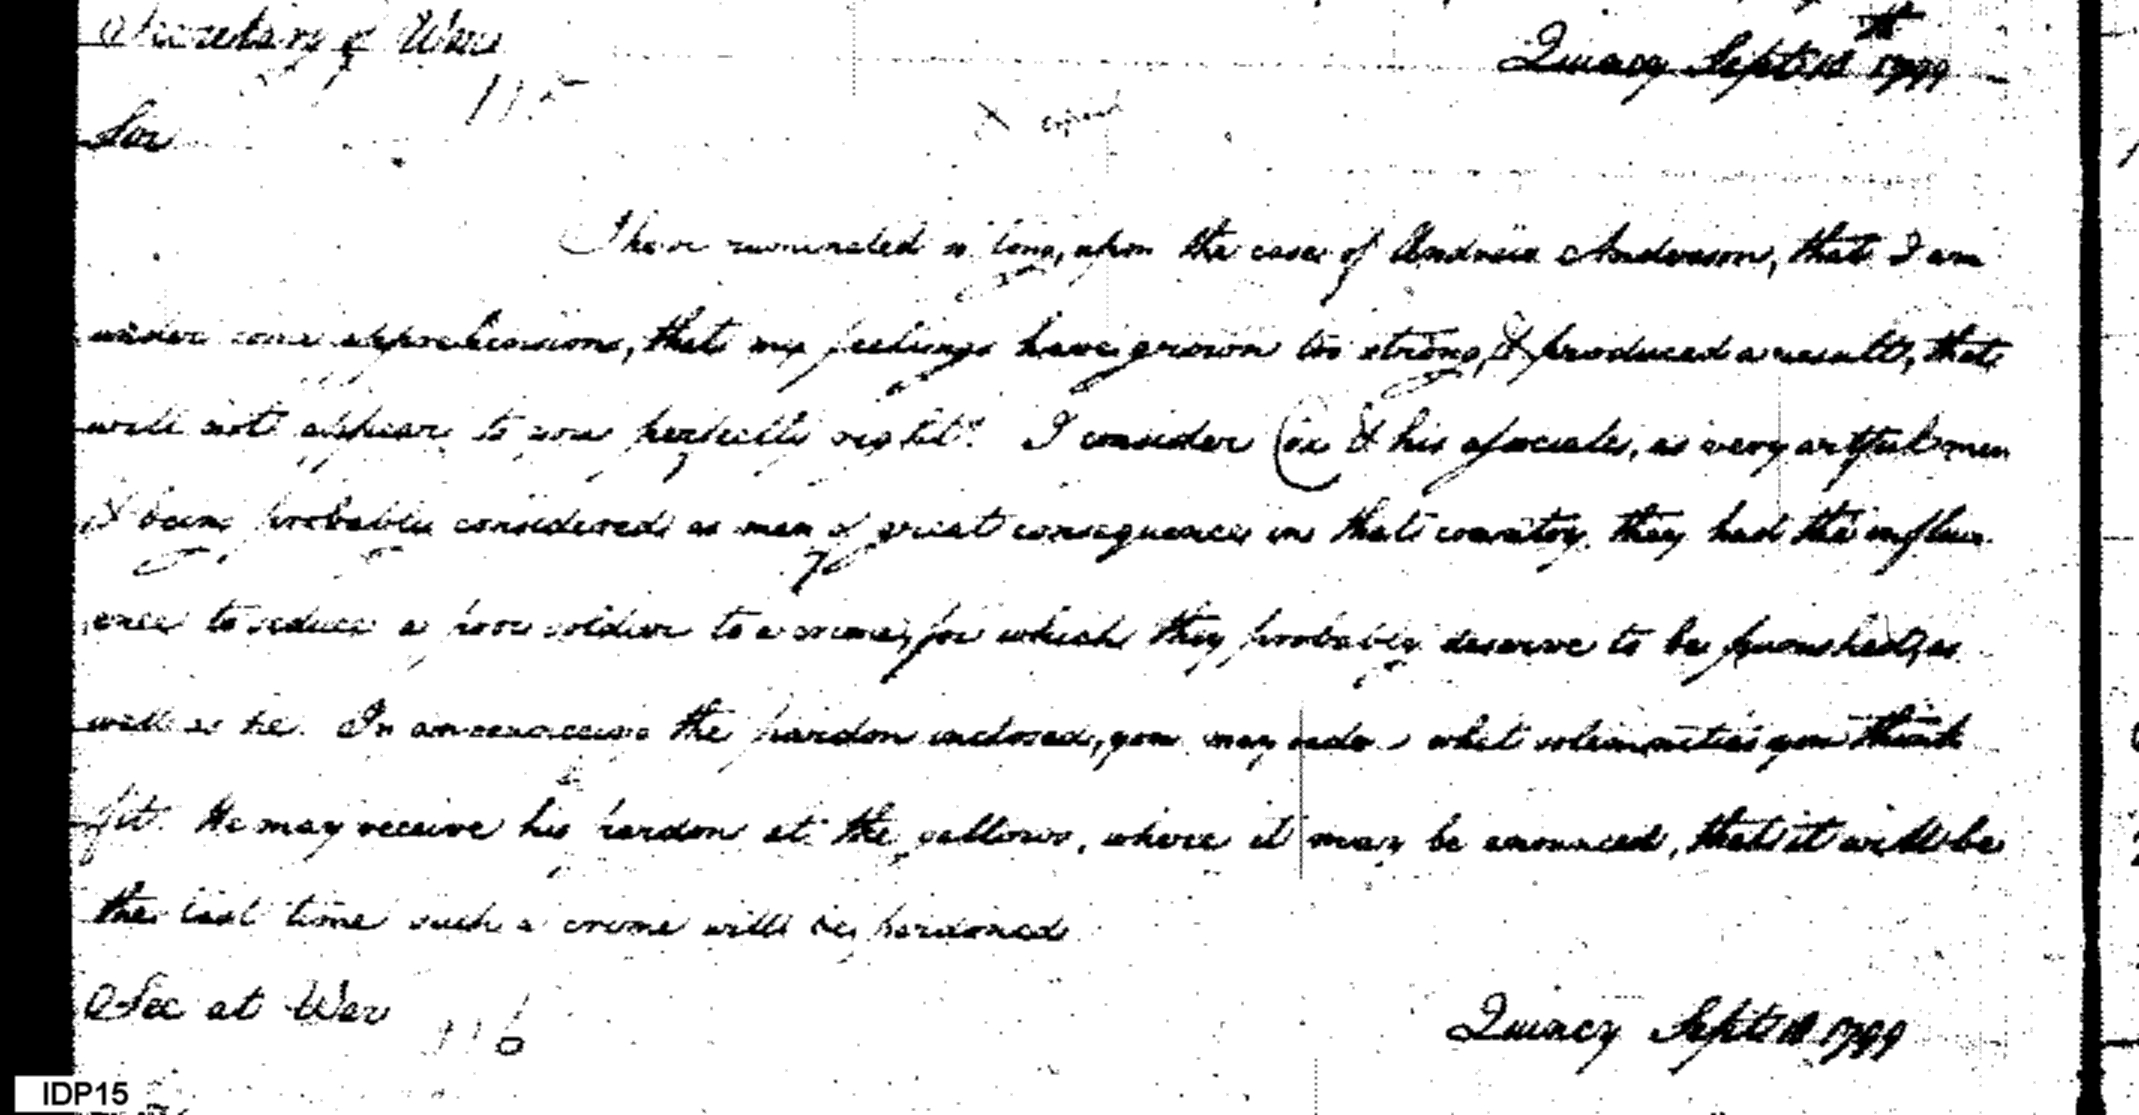 Secretary of War
Quincy Septr 18th 1799
115
X copied
Sir
I have ruminated so long, upon the case of Andrew Anderson, that I am
under some apprehensions, that my feelings have grown too strong, & produced a result, that
will not appear to you perfectly right. I consider Cox & his associates, as very artful men
& being probably considered as men of great consequence in that country, they had the influ
ence to seduce a poor soldier to a crime, for which they probably deserve to be punished, as
well as he. In announcing the pardon inclosed, you may order what solemnities you think
fit. He may receive his pardon at the gallows, where it may be anounced, that it will be
the last time such a crime will be pardoned
Sec at War
116
Quincy Sept 18 1799
IDP15